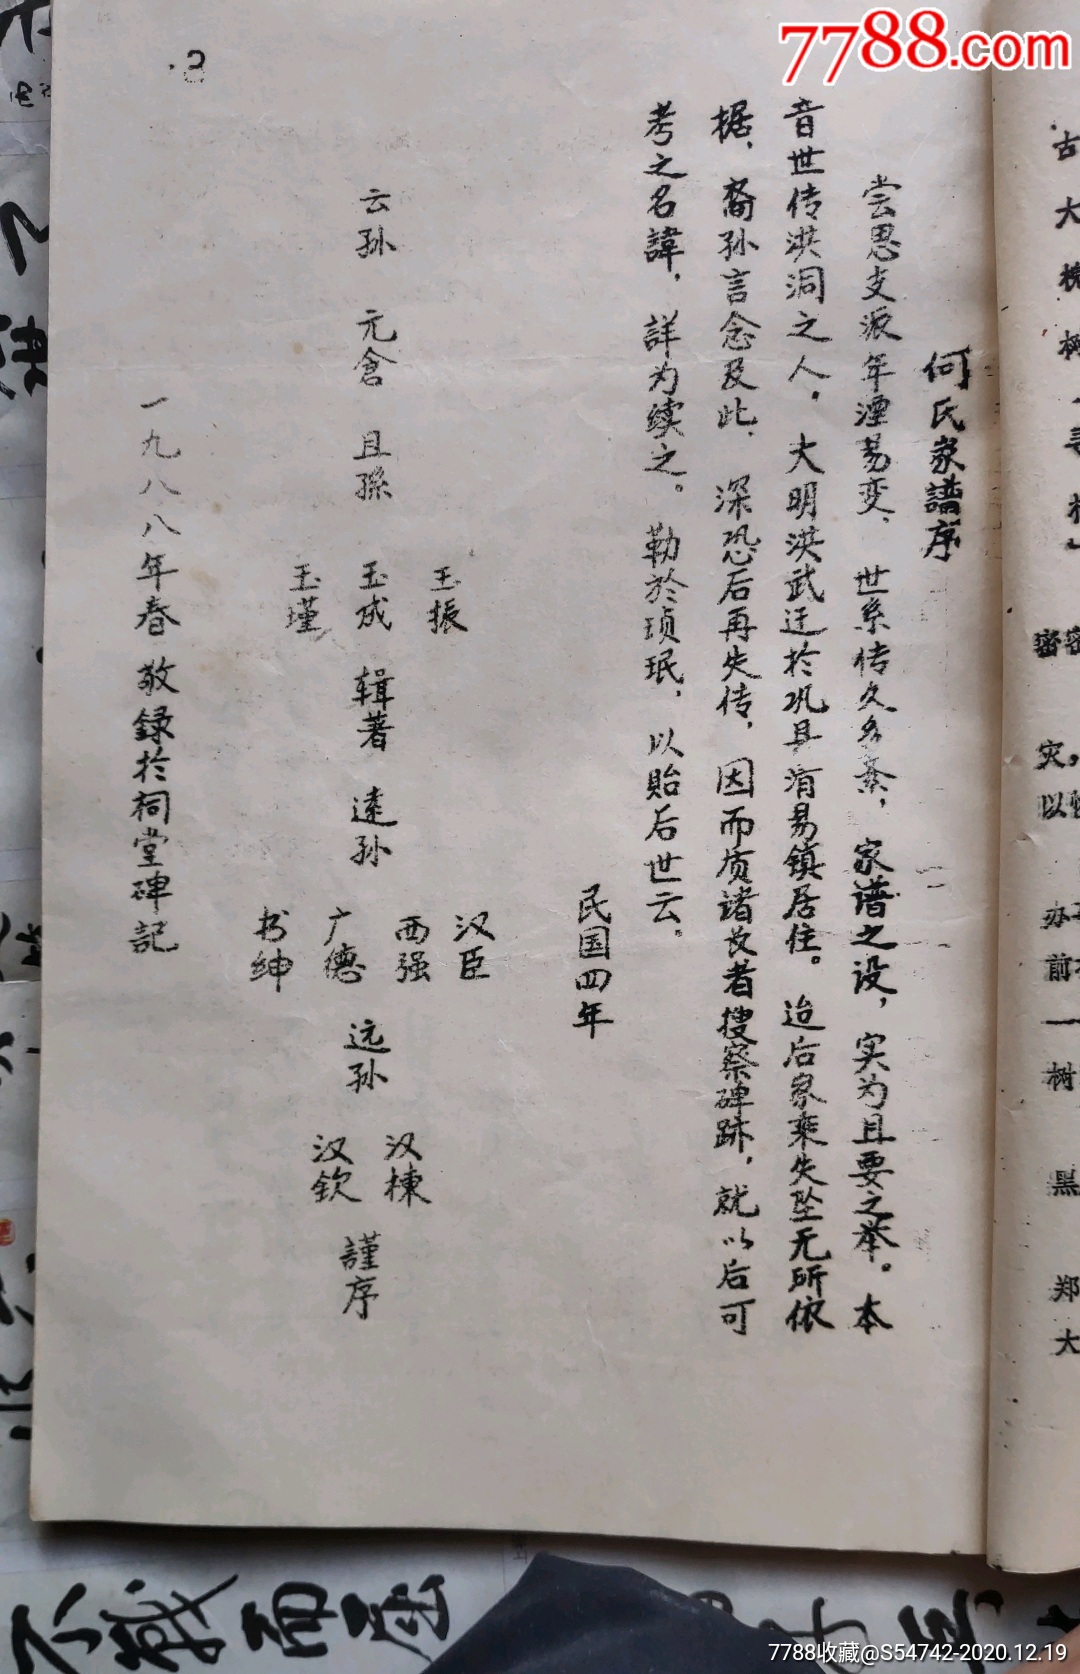 7788.com
3
何氏家譜序
尝思支派年湮易变、世系传久多紊，家谱之设，实为且要之举。本
音世传洪洞之人，大明洪武迁於巩县有易镇居住。迨后家乘失坠无所依
据，裔孙言念及此，深恐后再失传，因而质诸长者搜察碑跡，就以后可
考之名諱，詳为续之。勒於琐珉，以贻后世云。
民国四年
云孙 元倉 且孫 玉振 玉成 玉瑾 辑著 逺孙 汉臣 西强 广德 书绅 远孙 汉棟 汉钦 謹序
一九八八年春敬録於祠堂碑記
古大槐树
密密
灾，
以
办
前
一
树
黑
郑
大
7788收藏@S54742-2020.12.19